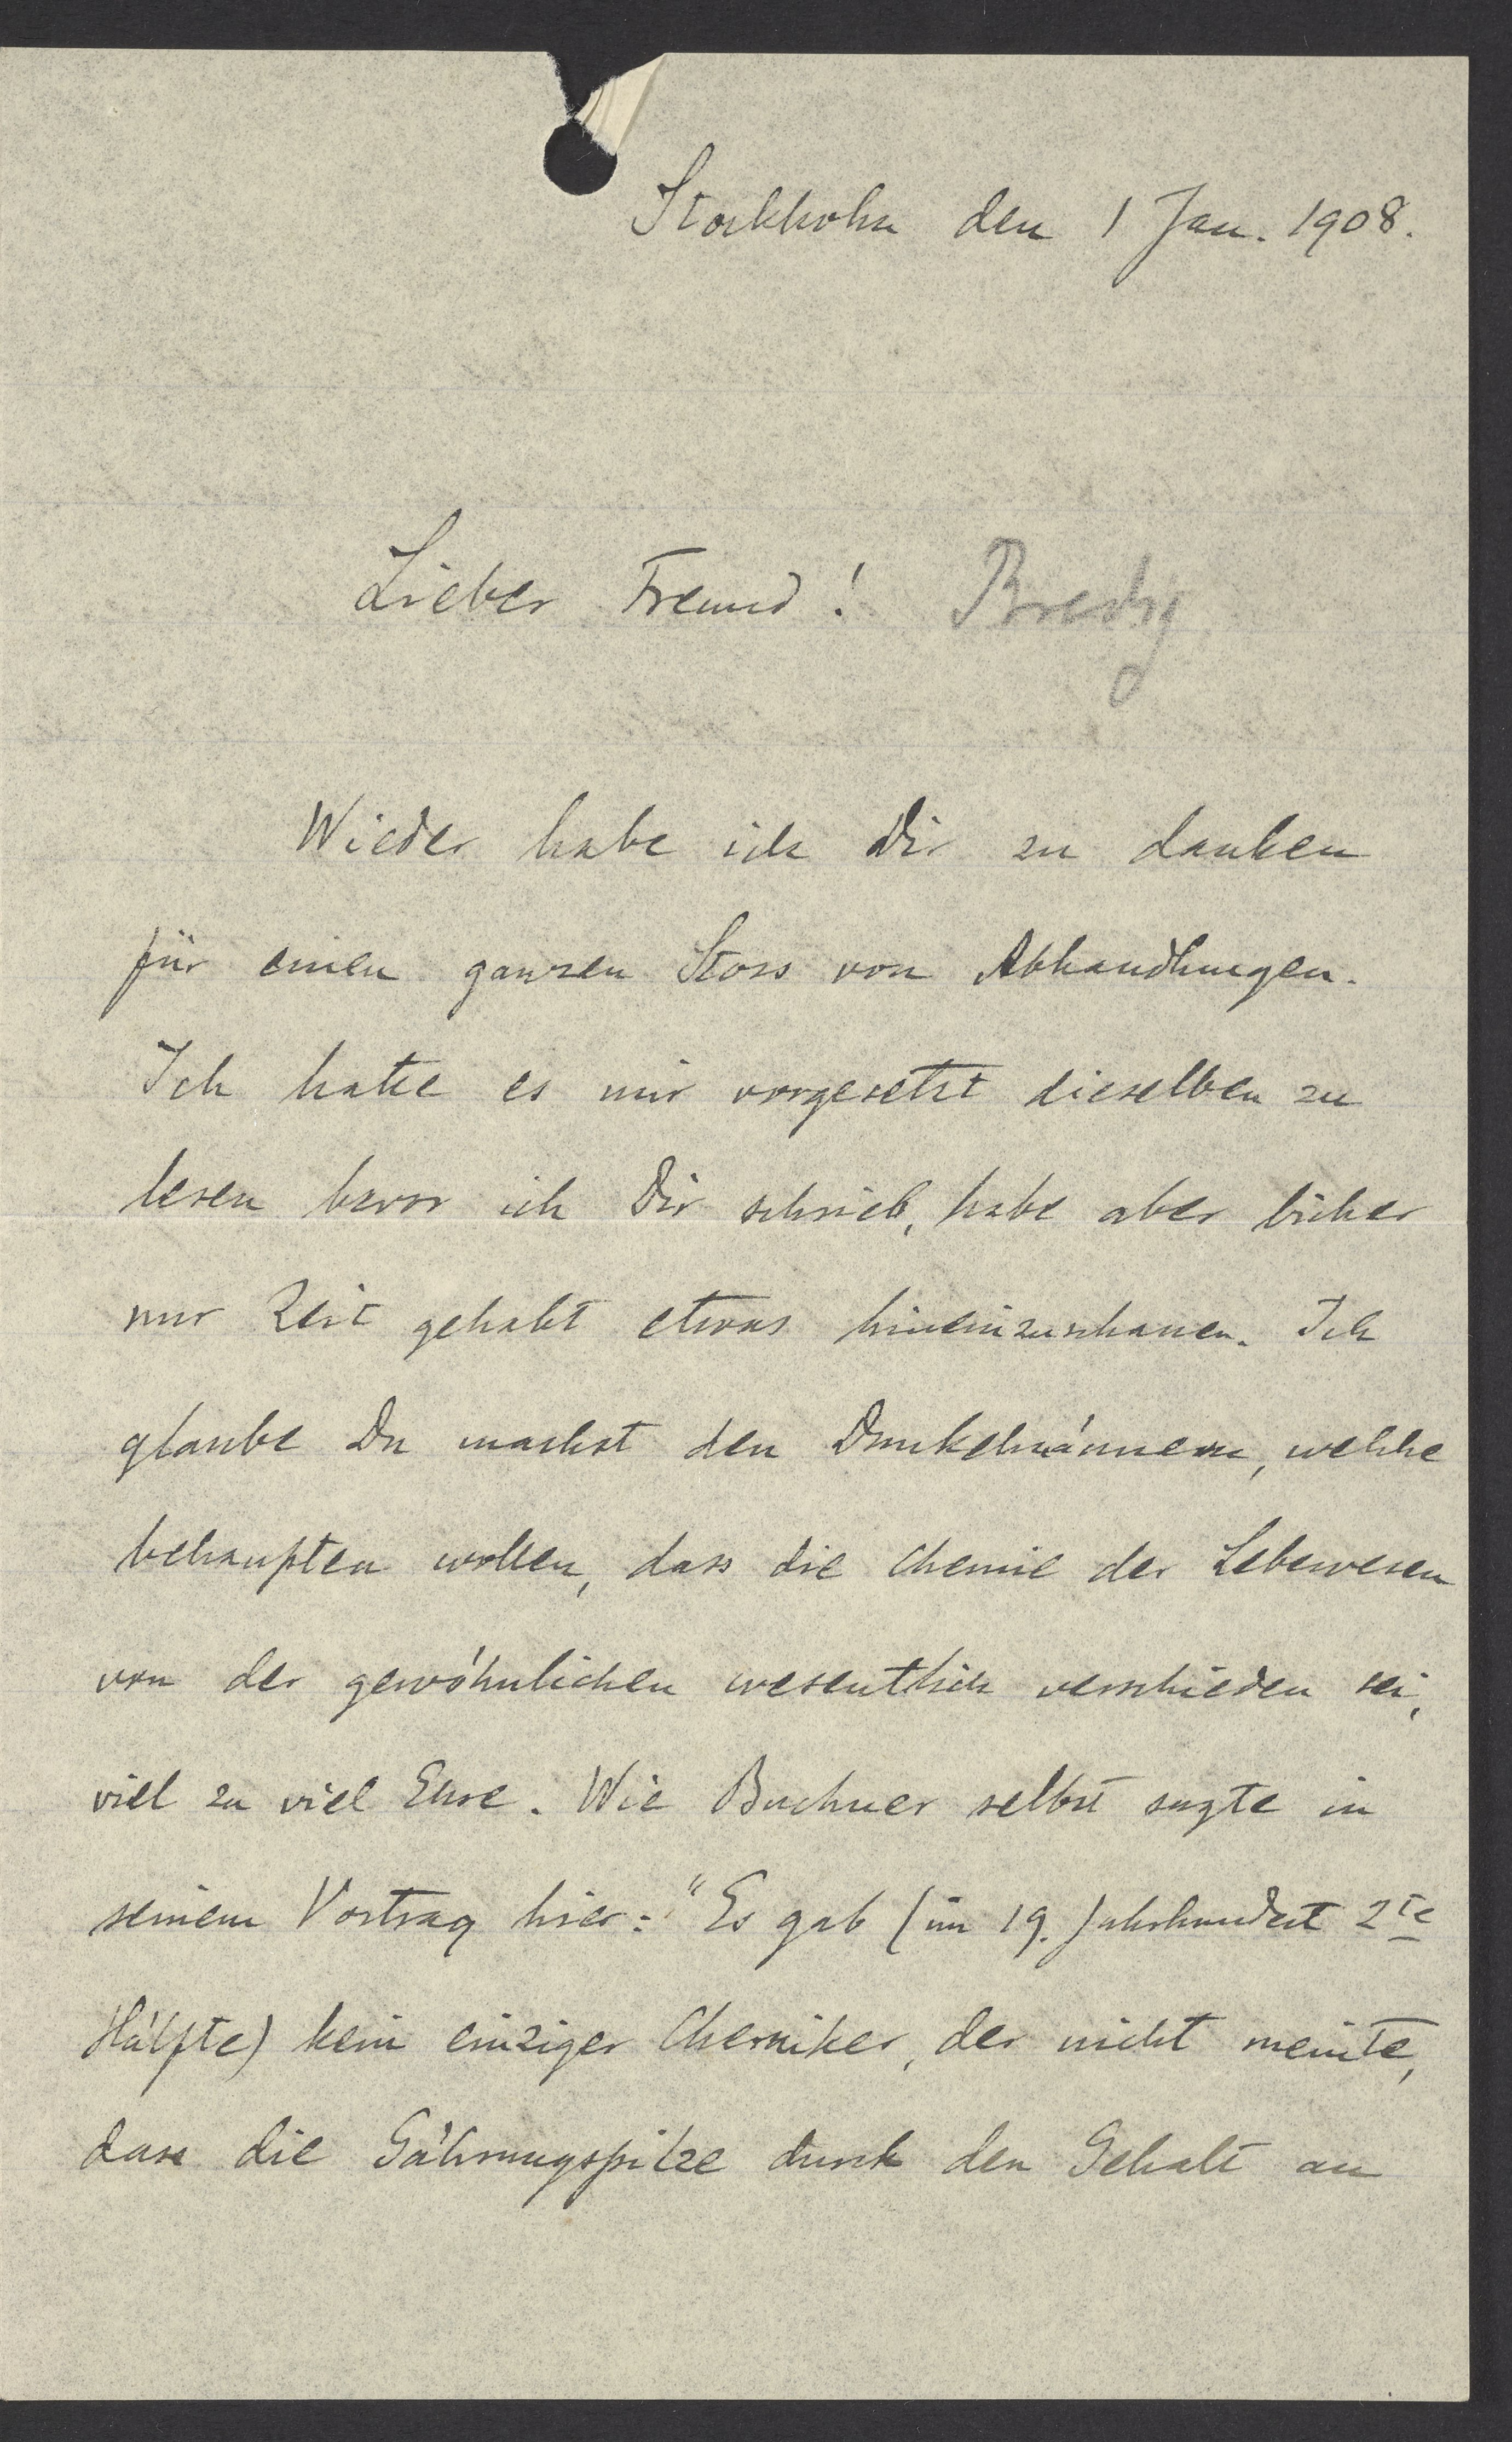 Stockholm den 1 Jan. 1908.
Lieber Freund! Bredig
Wieder habe ich Dir zu danken
für einen ganzen Stoss von Abhandlungen.
Ich hatte es mir vorgesetzt dieselben zu
lesen bevor ich Dir schrieb, habe aber bisher
nur Zeit gehabt etwas hineinzuschauen. Ich
glaube Du machst den Dunkelmännern, welche
behaupten wollen, dass die Chemie der Lebewesen
von der gewöhnlichen wesentlich verschieden sei,
viel zu viel Ehre. Wie Buchner selbst sagte in
seinem Vortrag hier: "Es gab (im 19. Jahrhundert 2te
Hälfte) kein einziger Chemiker, der nicht meinte,
dass die Gährungspilze durch den Gehalt an